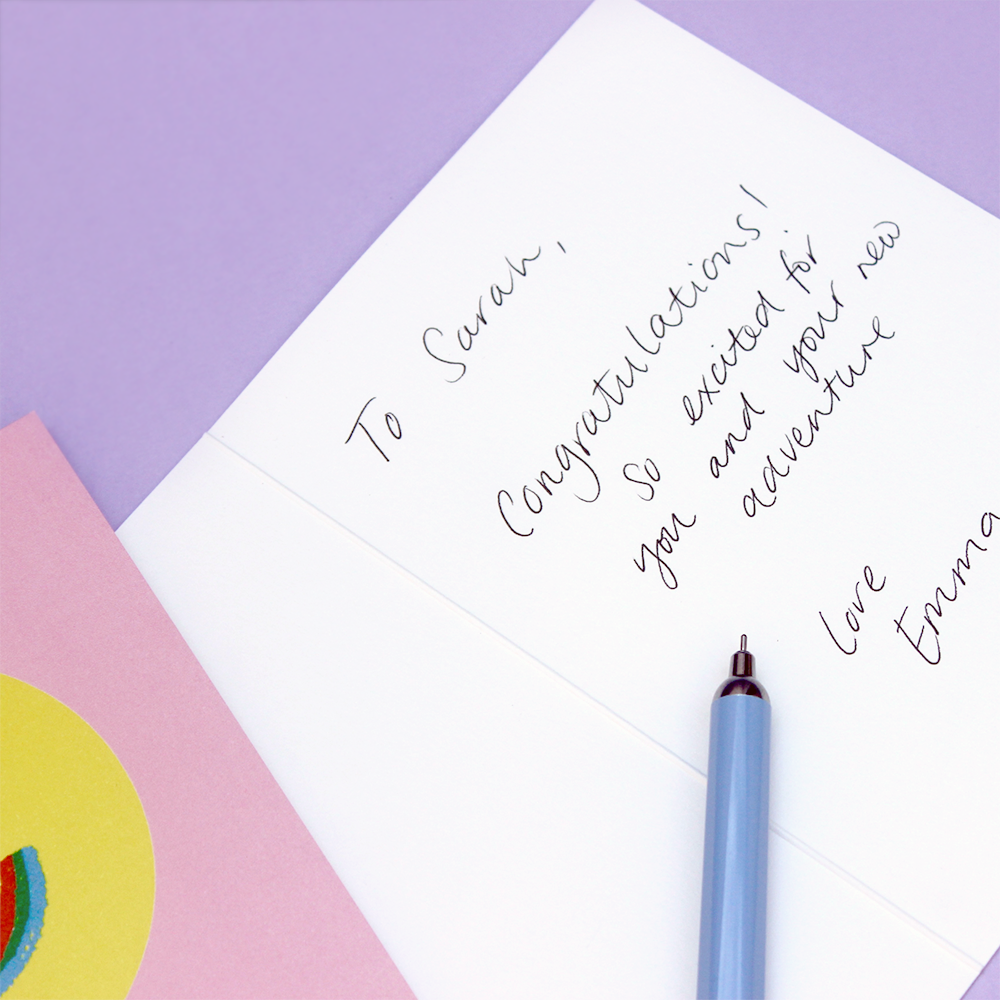 To Sarah,
Congratulations!
So excited for
you and your new
adventure
Love
Emma